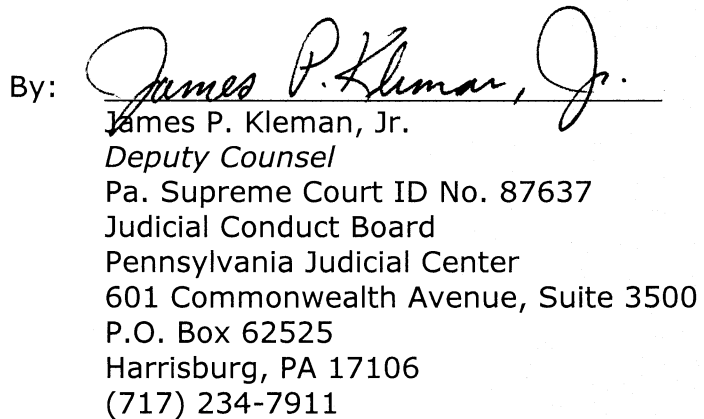 By: James P. Kleman, Jr.
James P. Kleman, Jr.
Deputy Counsel
Pa. Supreme Court ID No. 87637
Judicial Conduct Board
Pennsylvania Judicial Center
601 Commonwealth Avenue, Suite 3500
P.O. Box 62525
Harrisburg, PA 17106
(717) 234-7911